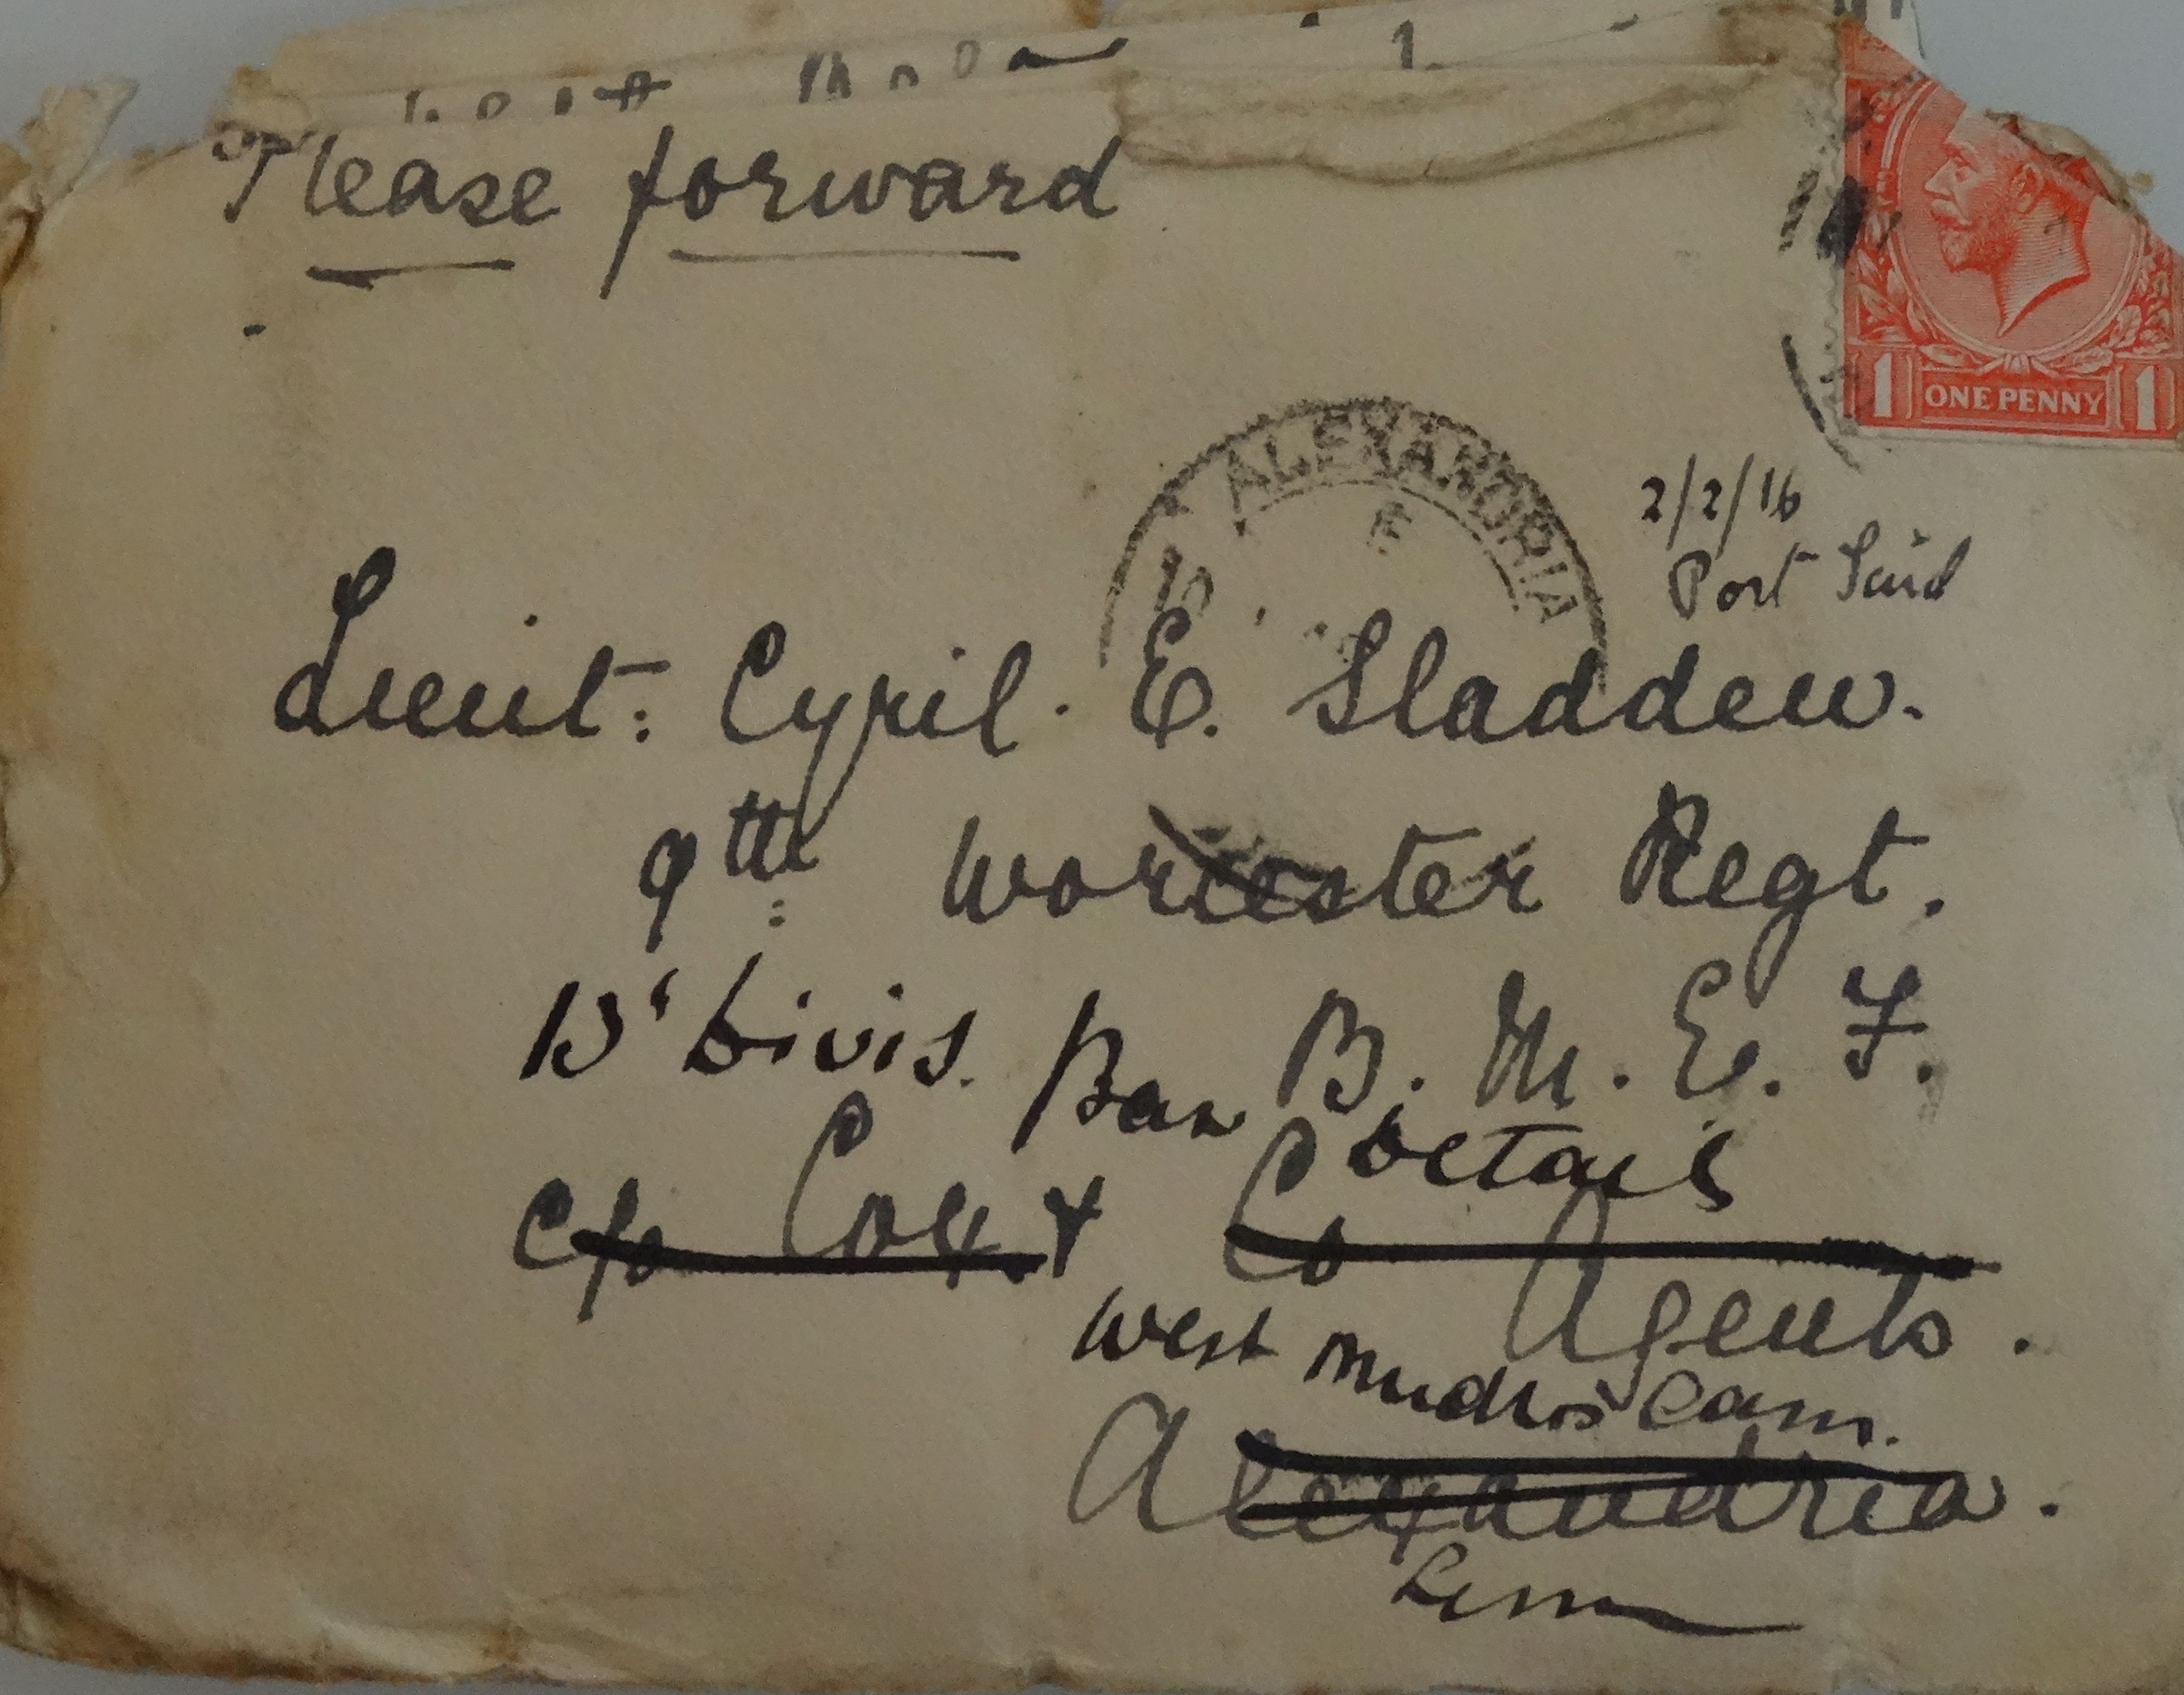 Please forward
1 ONE PENNY 1
ALEXANDRIA
E
2/2/16
Port Said
Lieut: Cyril. E. Sladden.
9th Worcester Regt.
13' Divis. Base B. M. E. F.
Details
c/o Cox & Co Agents.
West Mudros Cam.
Alexandria.